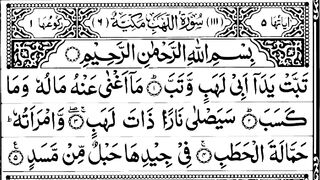 اٰيَاتُهَا ٥ (١١١) سُوْرَةُ اللَّهَبِ مَكِّيَّةٌ (٦) رُكُوْعُهَا ١
بِسْمِ اللهِ الرَّحْمٰنِ الرَّحِيْمِ
تَبَّتْ يَدَآ اَبِيْ لَهَبٍ وَّتَبَّ ۝١ مَآ اَغْنٰى عَنْهُ مَالُهٗ وَمَا
كَسَبَ ۝٢ سَيَصْلٰى نَارًا ذَاتَ لَهَبٍ ۝٣ وَّامْرَاَتُهٗ ؕ
حَمَّالَةَ الْحَطَبِ ۝٤ فِيْ جِيْدِهَا حَبْلٌ مِّنْ مَّسَدٍ ۝٥